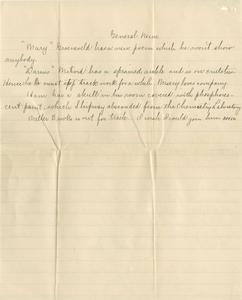 General News
"Mary" Griswold has a new poem which he won't show
anybody.
"Darius" has a sprained ankle and is on crutches.
He must stop track work for a while. Misery loves company.
Ham has a skull in his room covered with phosphores-
cent paint, which I absconded from the Chemistry Laboratory
is out for track. I wish I could join him soon